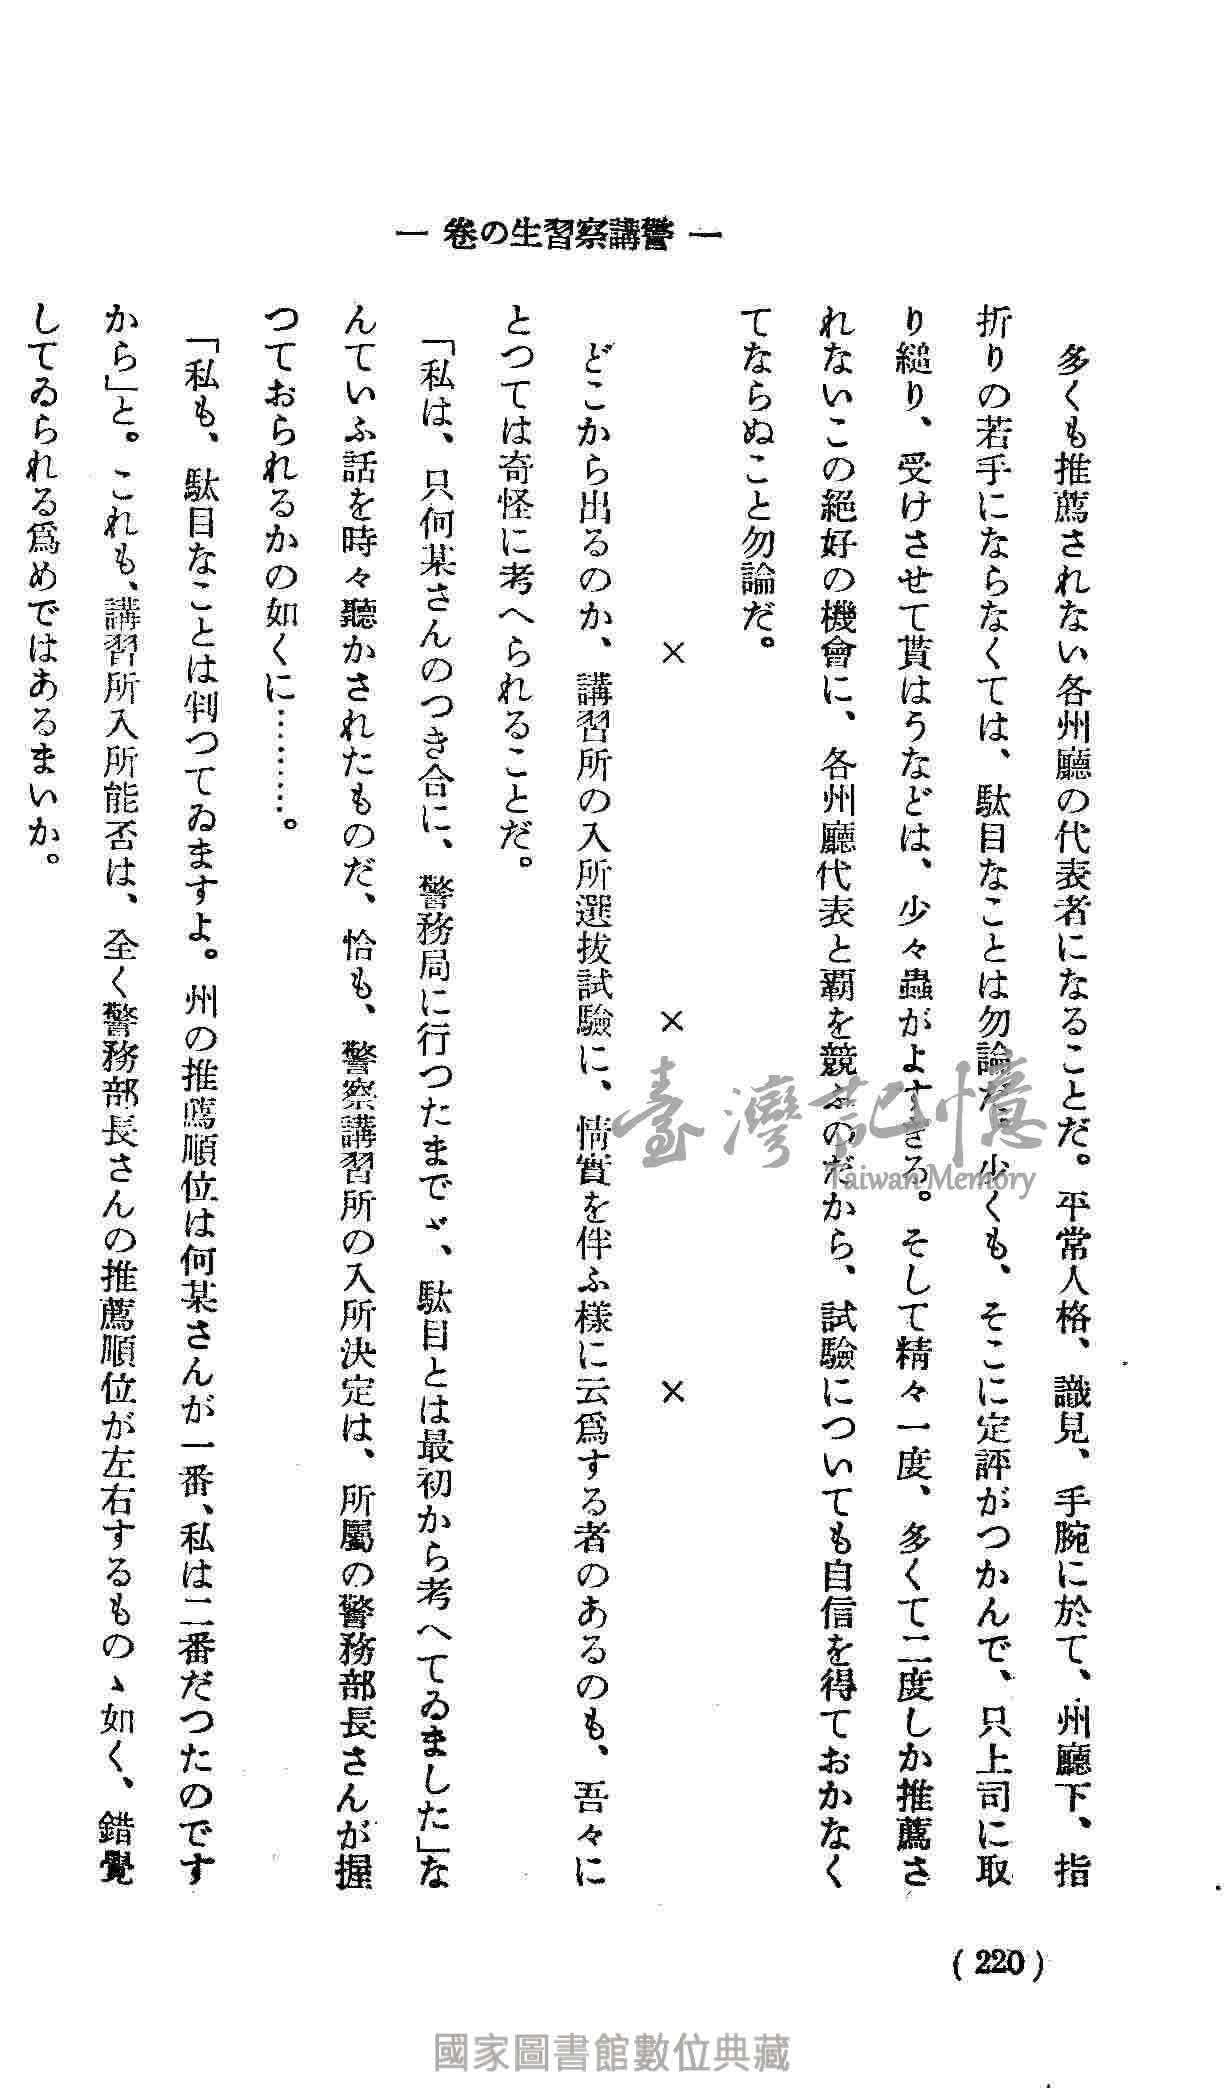 一 警講察習生の卷 一
多くも推薦されない各州廳の代表者になることだ。平常人格、識見、手腕に於て、州廳下、指
折りの若手にならなくては、駄目なことは勿論だ。少くも、そこに定評がつかんで、只上司に取
り縋り、受けさせて貰はうなどは、少々蟲がよすぎる。そして精々一度、多くて二度しか推薦さ
れないこの絶好の機會に、各州廳代表と覇を競ふのだから、試驗についても自信を得ておかなく
てならぬこと勿論だ。
× × ×
どこから出るのか、講習所の入所選拔試驗に、情實を伴ふ樣に云爲する者のあるのも、吾々に
とつては奇怪に考へられることだ。
「私は、只何某さんのつき合に、警務局に行つたまでゞ、駄目とは最初から考へてゐました」な
んていふ話を時々聽かされたものだ、恰も、警察講習所の入所決定は、所屬の警務部長さんが握
つておられるかの如くに………。
「私も、駄目なことは判つてゐますよ。州の推薦順位は何某さんが一番、私は二番だつたのです
から」と。これも、講習所入所能否は、全く警務部長さんの推薦順位が左右するものゝ如く、錯覺
してゐられる爲めではあるまいか。
(220)
臺灣記憶
Taiwan Memory
國家圖書館數位典藏